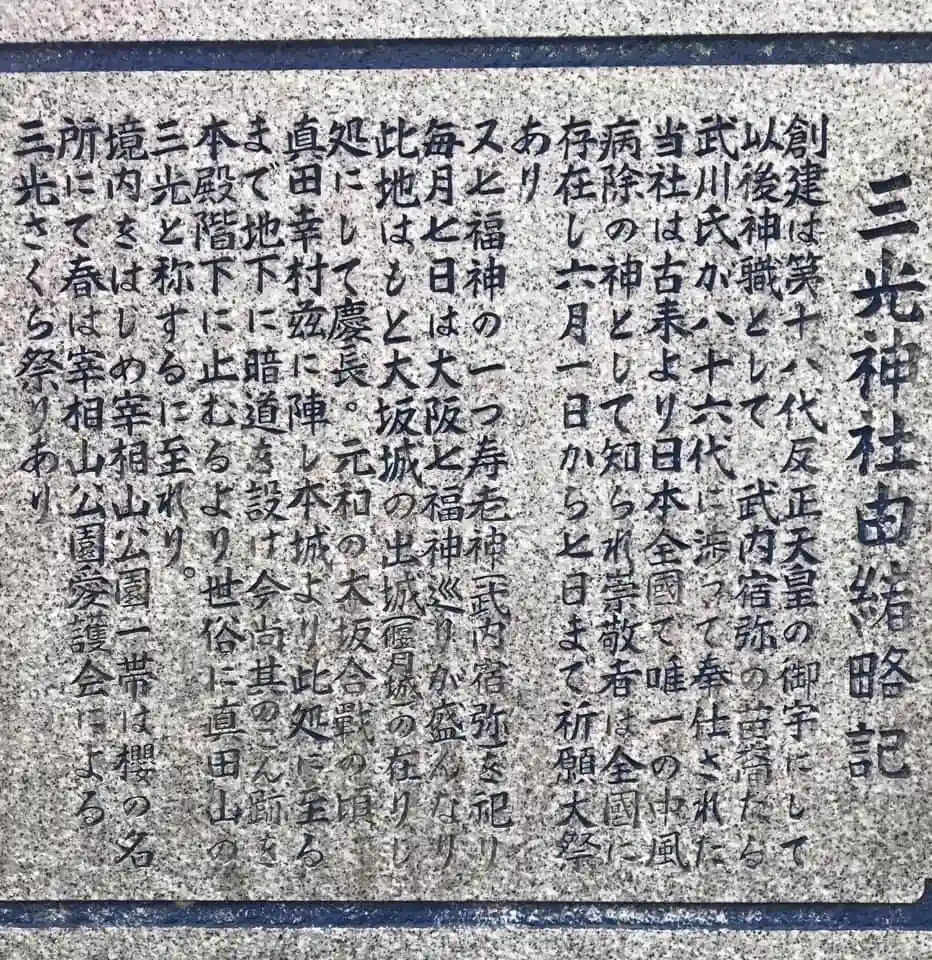 三光神社由緒略記
創建は第十八代反正天皇の御宇にして
以後神職として 武内宿弥の苗裔たる
武川氏か八十六代に渉って奉仕された
当社は古来より日本全國で唯一の中風
病除の神として知られ崇敬者は全國に
存在し六月一日から七日まで祈願大祭
あり
又七福神の一つ寿老神(武内宿弥)を祀り
毎月七日は大阪七福神巡りが盛んなり
此地はもと大坂城の出城(偃月城)の在りし
処にして慶長。元和の大坂合戰の頃
真田幸村茲に陣し本城より此処に至る
まで地下に暗道を設け今尚其のこん跡を
本殿階下に止むるより世俗に真田山の
三光と称するに至れり。
境内をはじめ宰相山公園一帯は櫻の名
所にて春は宰相山公園愛護会による
三光さくら祭りあり